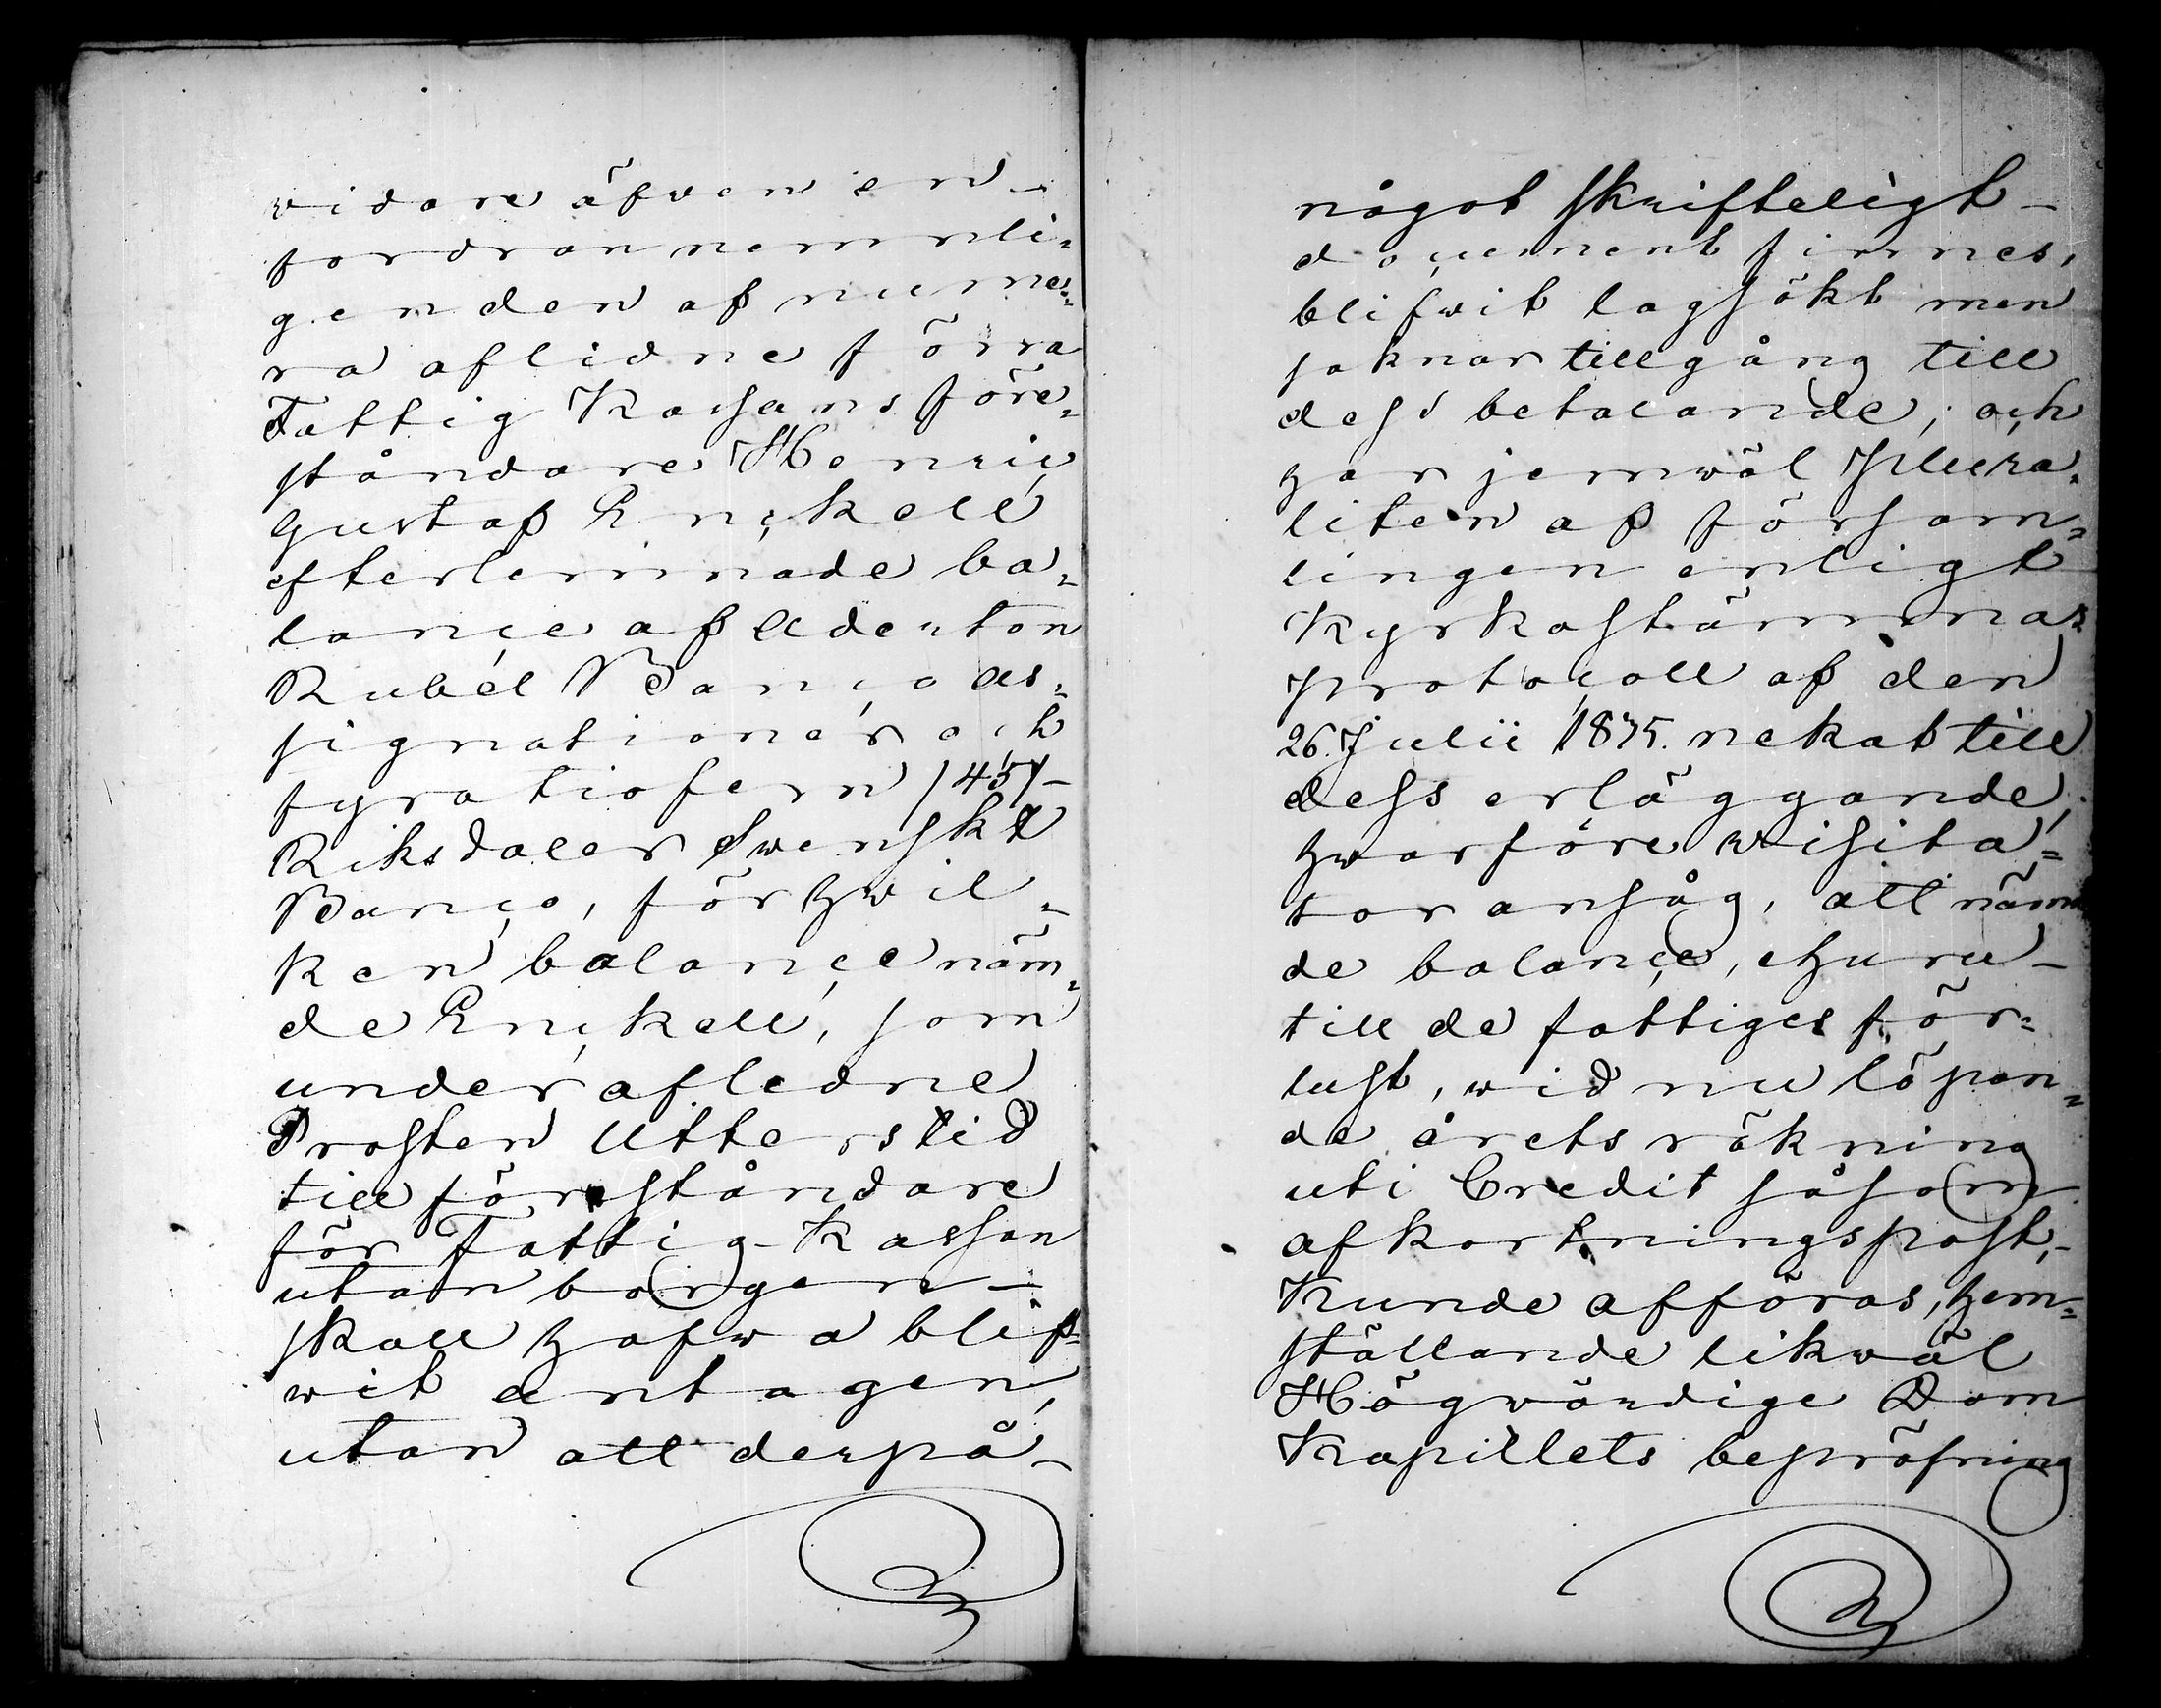 vidare äfwen en-
fordran nemnli=
gen den af nume=
ra aflidne förra
Fattig Kassans före=
ståndare Henric
Gustaf Enckell
efterlemnade ba=
lance af Aderton
Rubel Banco as=
signationer och
fyratiofem /45/-
Riksdaler Swenskt
Banco, för hwil=
ken balance näm=
de Enckell, som
under aflidne
Prosten Utters tid
till föreståndare
för Fattig-Kassan
utan borgen-
skall hafwa blif=
wit antagen,
utan att derpå-
något skrifteligt-
document finnes,
blifwit lagsökt men
saknar tillgång till
dess betalande; och
har jemwäl plura=
liten af försam=
lingen enligt
Kyrkostämmas
protocoll af den
26. Julii 1835. nekat till
dess erläggande,
hwarföre wisita=
tor ansåg, att näm
de balance, ehuru-
till de fattiges för=
lust, wid nu löpan=
de årets räkning
uti Credit såsom
afkortningspost,-
Kunde afföras, hem=
ställande likwäl
Högwördige Dom
Kapillets bepröfning